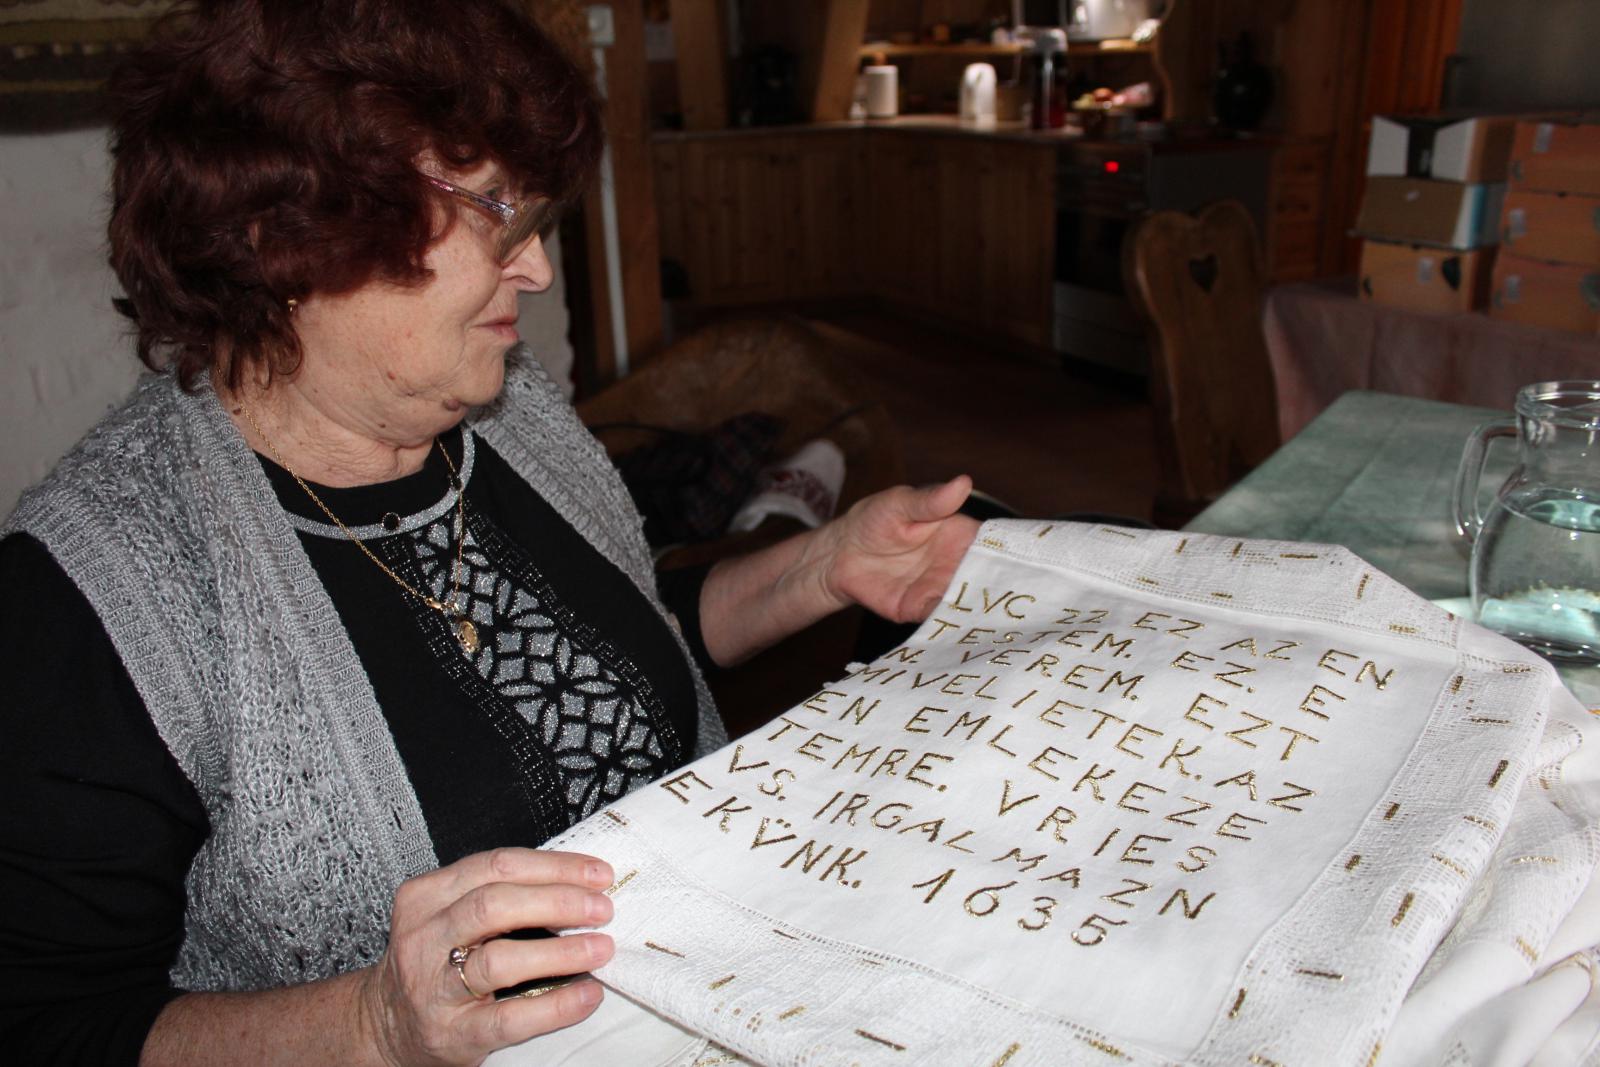 LVC 22 EZ AZ EN
TESTEM. EZ. E
N. VEREM. EZT
MIVELIETEK. AZ
EN EMLEKEZE
TEMRE. VRIES
VS. IRGALMAZN
EKV̈NK. 1635